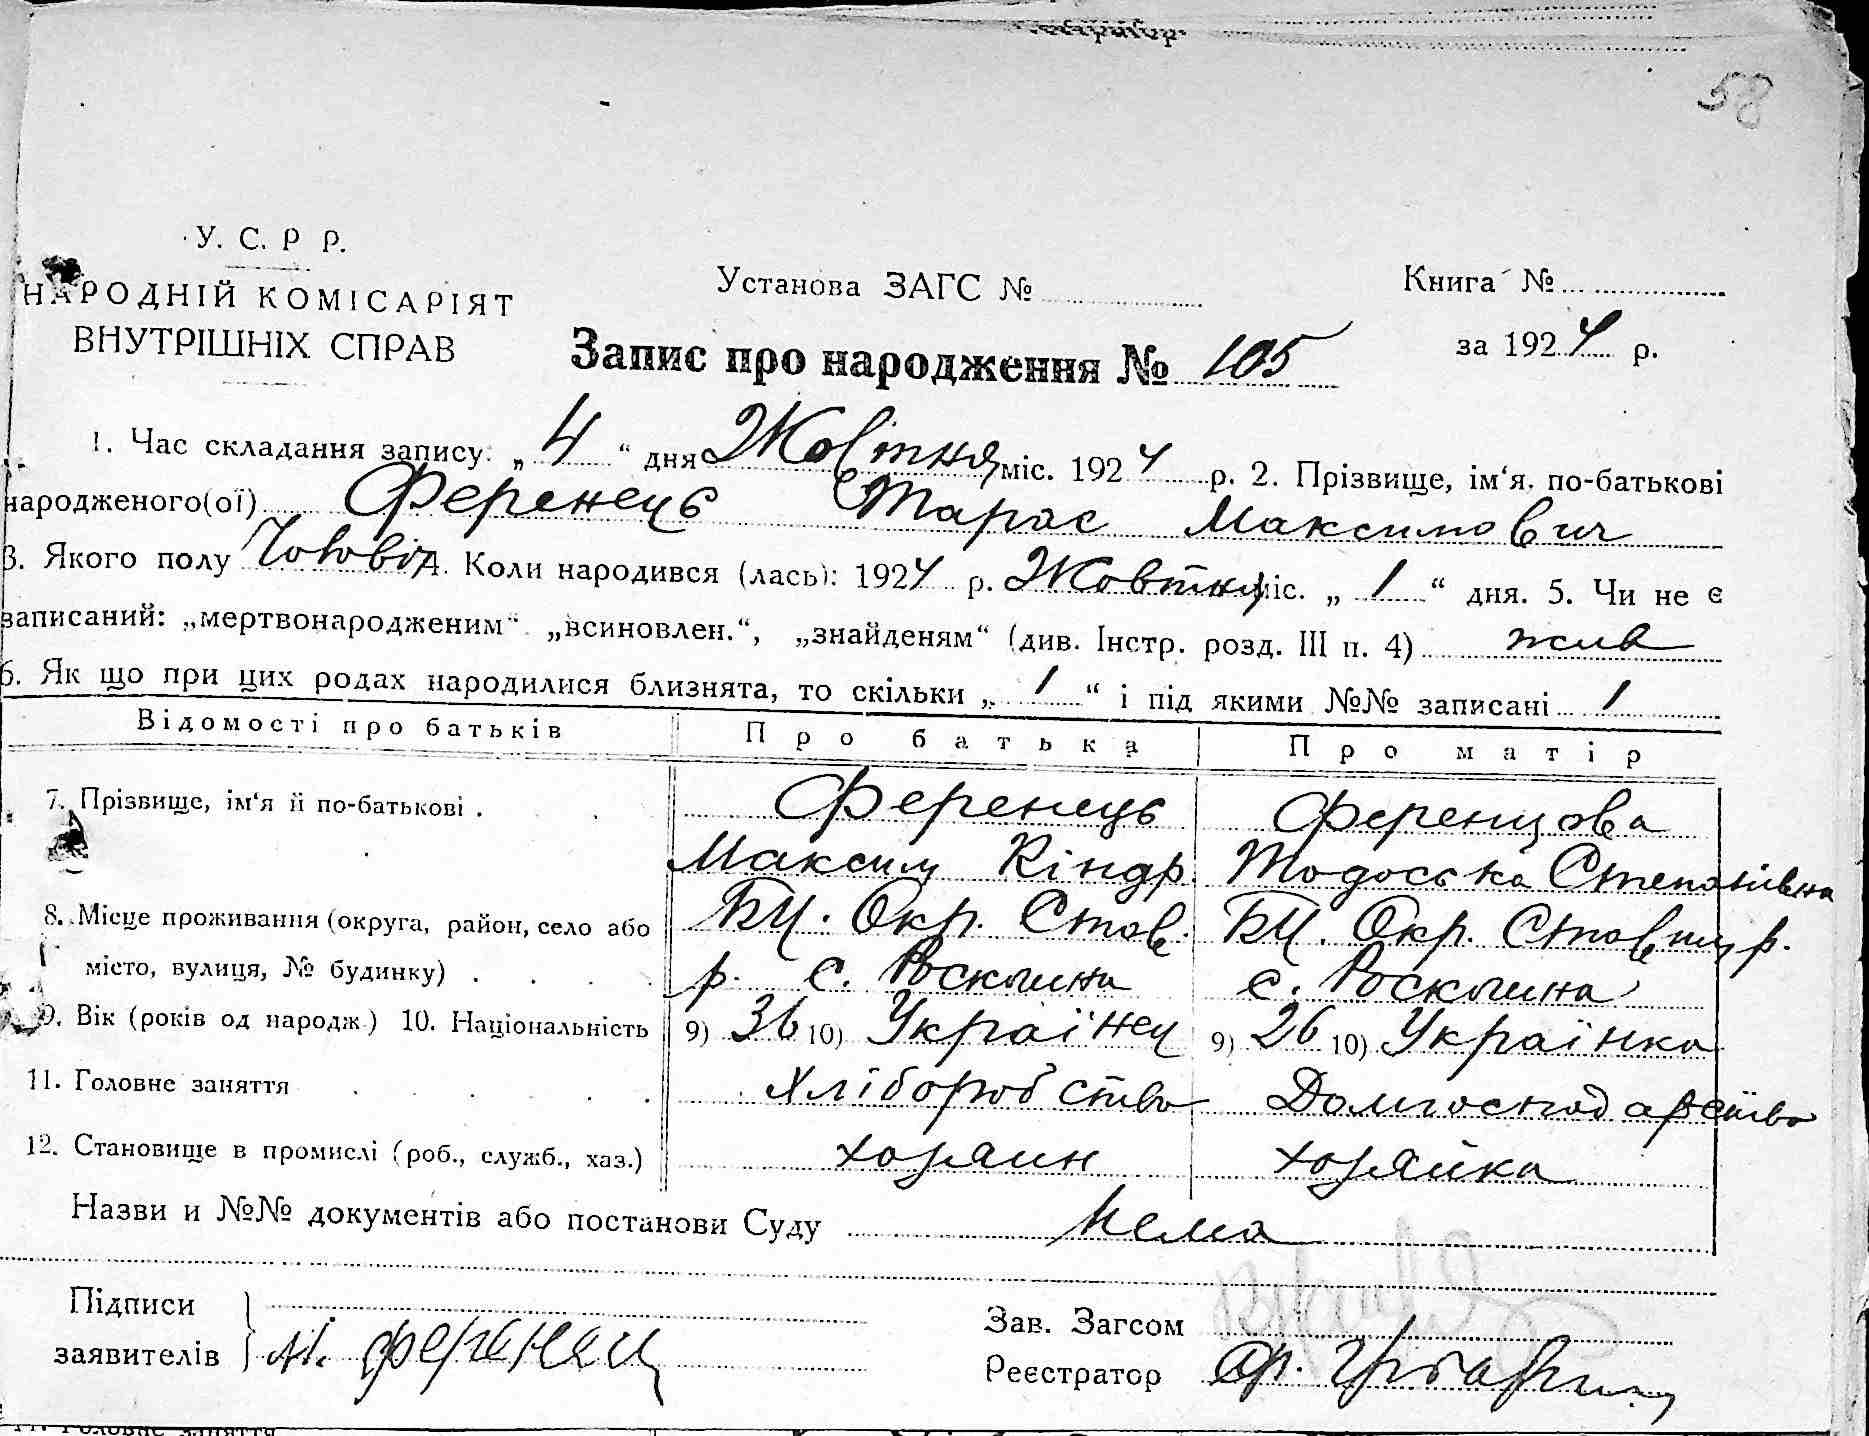 58
У. С. Р Р.
НАРОДНІЙ КОМІСАРІЯТ
ВНУТРІШНІХ СПРАВ
Установа ЗАГС №
Книга №
за 1924 р.
Запис про народження № 105
1. Час складання запису: „4“ дня Жовтня міс. 1924 р. 2. Прізвище, ім‘я, по-батькові
народженого(ої) Ференець Тарас Максимович
3. Якого полу Чоловіч 4. Коли народився (лась): 1924 р. Жовтня міс. „1“ дня. 5. Чи не є
записаний: „мертвонародженим“ „всиновлен.“, „знайденям“ (див. Інстр. розд. III п. 4) жив
6. Як що при цих родах народилися близнята, то скільки „1“ і під якими №№ записані 1
Відомості про батьків Про батька Про матір
7. Прізвище, ім‘я й по-батькові . Ференець Ференцова
Максим Кіндр. Тодоська Степанівна
8. Місце проживання (округа, район, село або БЦ. Окр. Став. БЦ. Окр. Ставищ р.
місто, вулиця, № будинку) . р. с. Роскошна с. Роскошна
9. Вік (років од народж.) 10. Національність 9) 36 10) Українец 9) 26 10) Українка
11. Головне заняття Хліборобство Домгосподарство
12. Становище в промислі (роб., служб., хаз.) хозяин хозяйка
Назви и №№ документів або постанови Суду Нема
Підписи
заявителів М. Ференец
Зав. Загсом
Реєстратор
11. Головне заняття